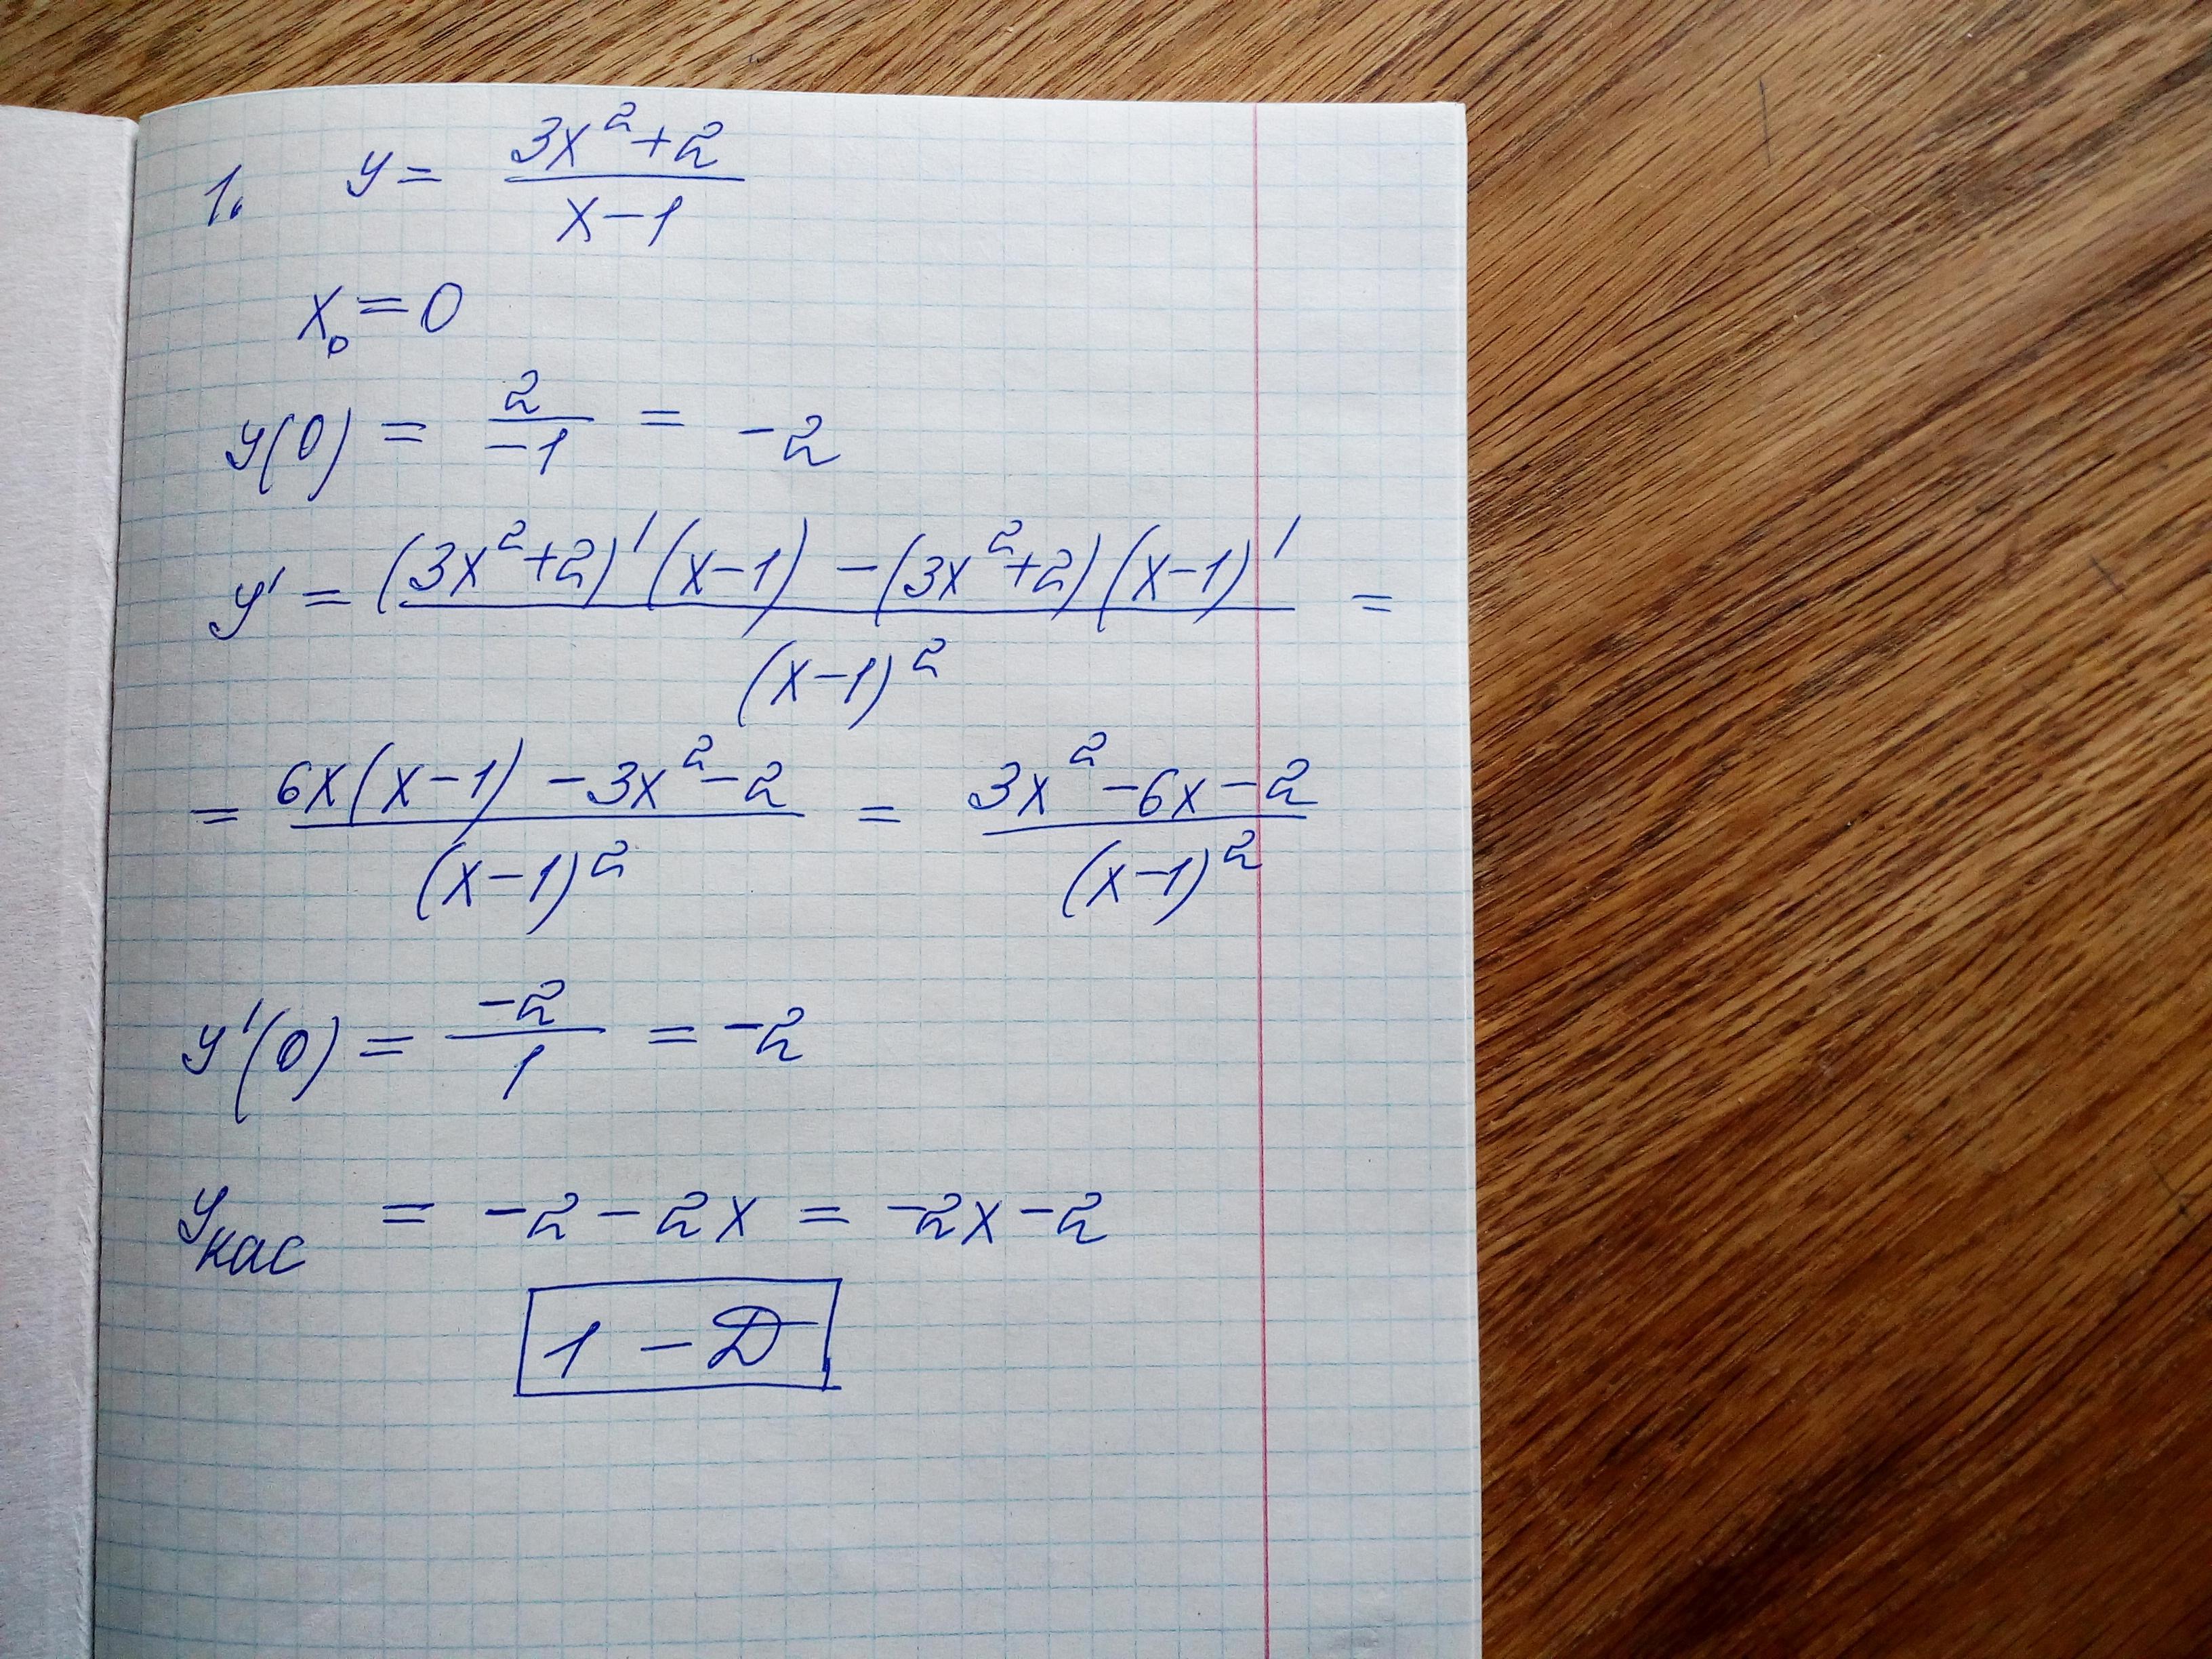 1. y = (3x²+2)/(x-1)
x₀ = 0
y(0) = 2/(-1) = -2
y' = ((3x²+2)'(x-1) - (3x²+2)(x-1)')/(x-1)² =
= (6x(x-1) - 3x² - 2)/(x-1)² = (3x² - 6x - 2)/(x-1)²
y'(0) = -2/1 = -2
yкас = -2 - 2x = -2x - 2
1 - D